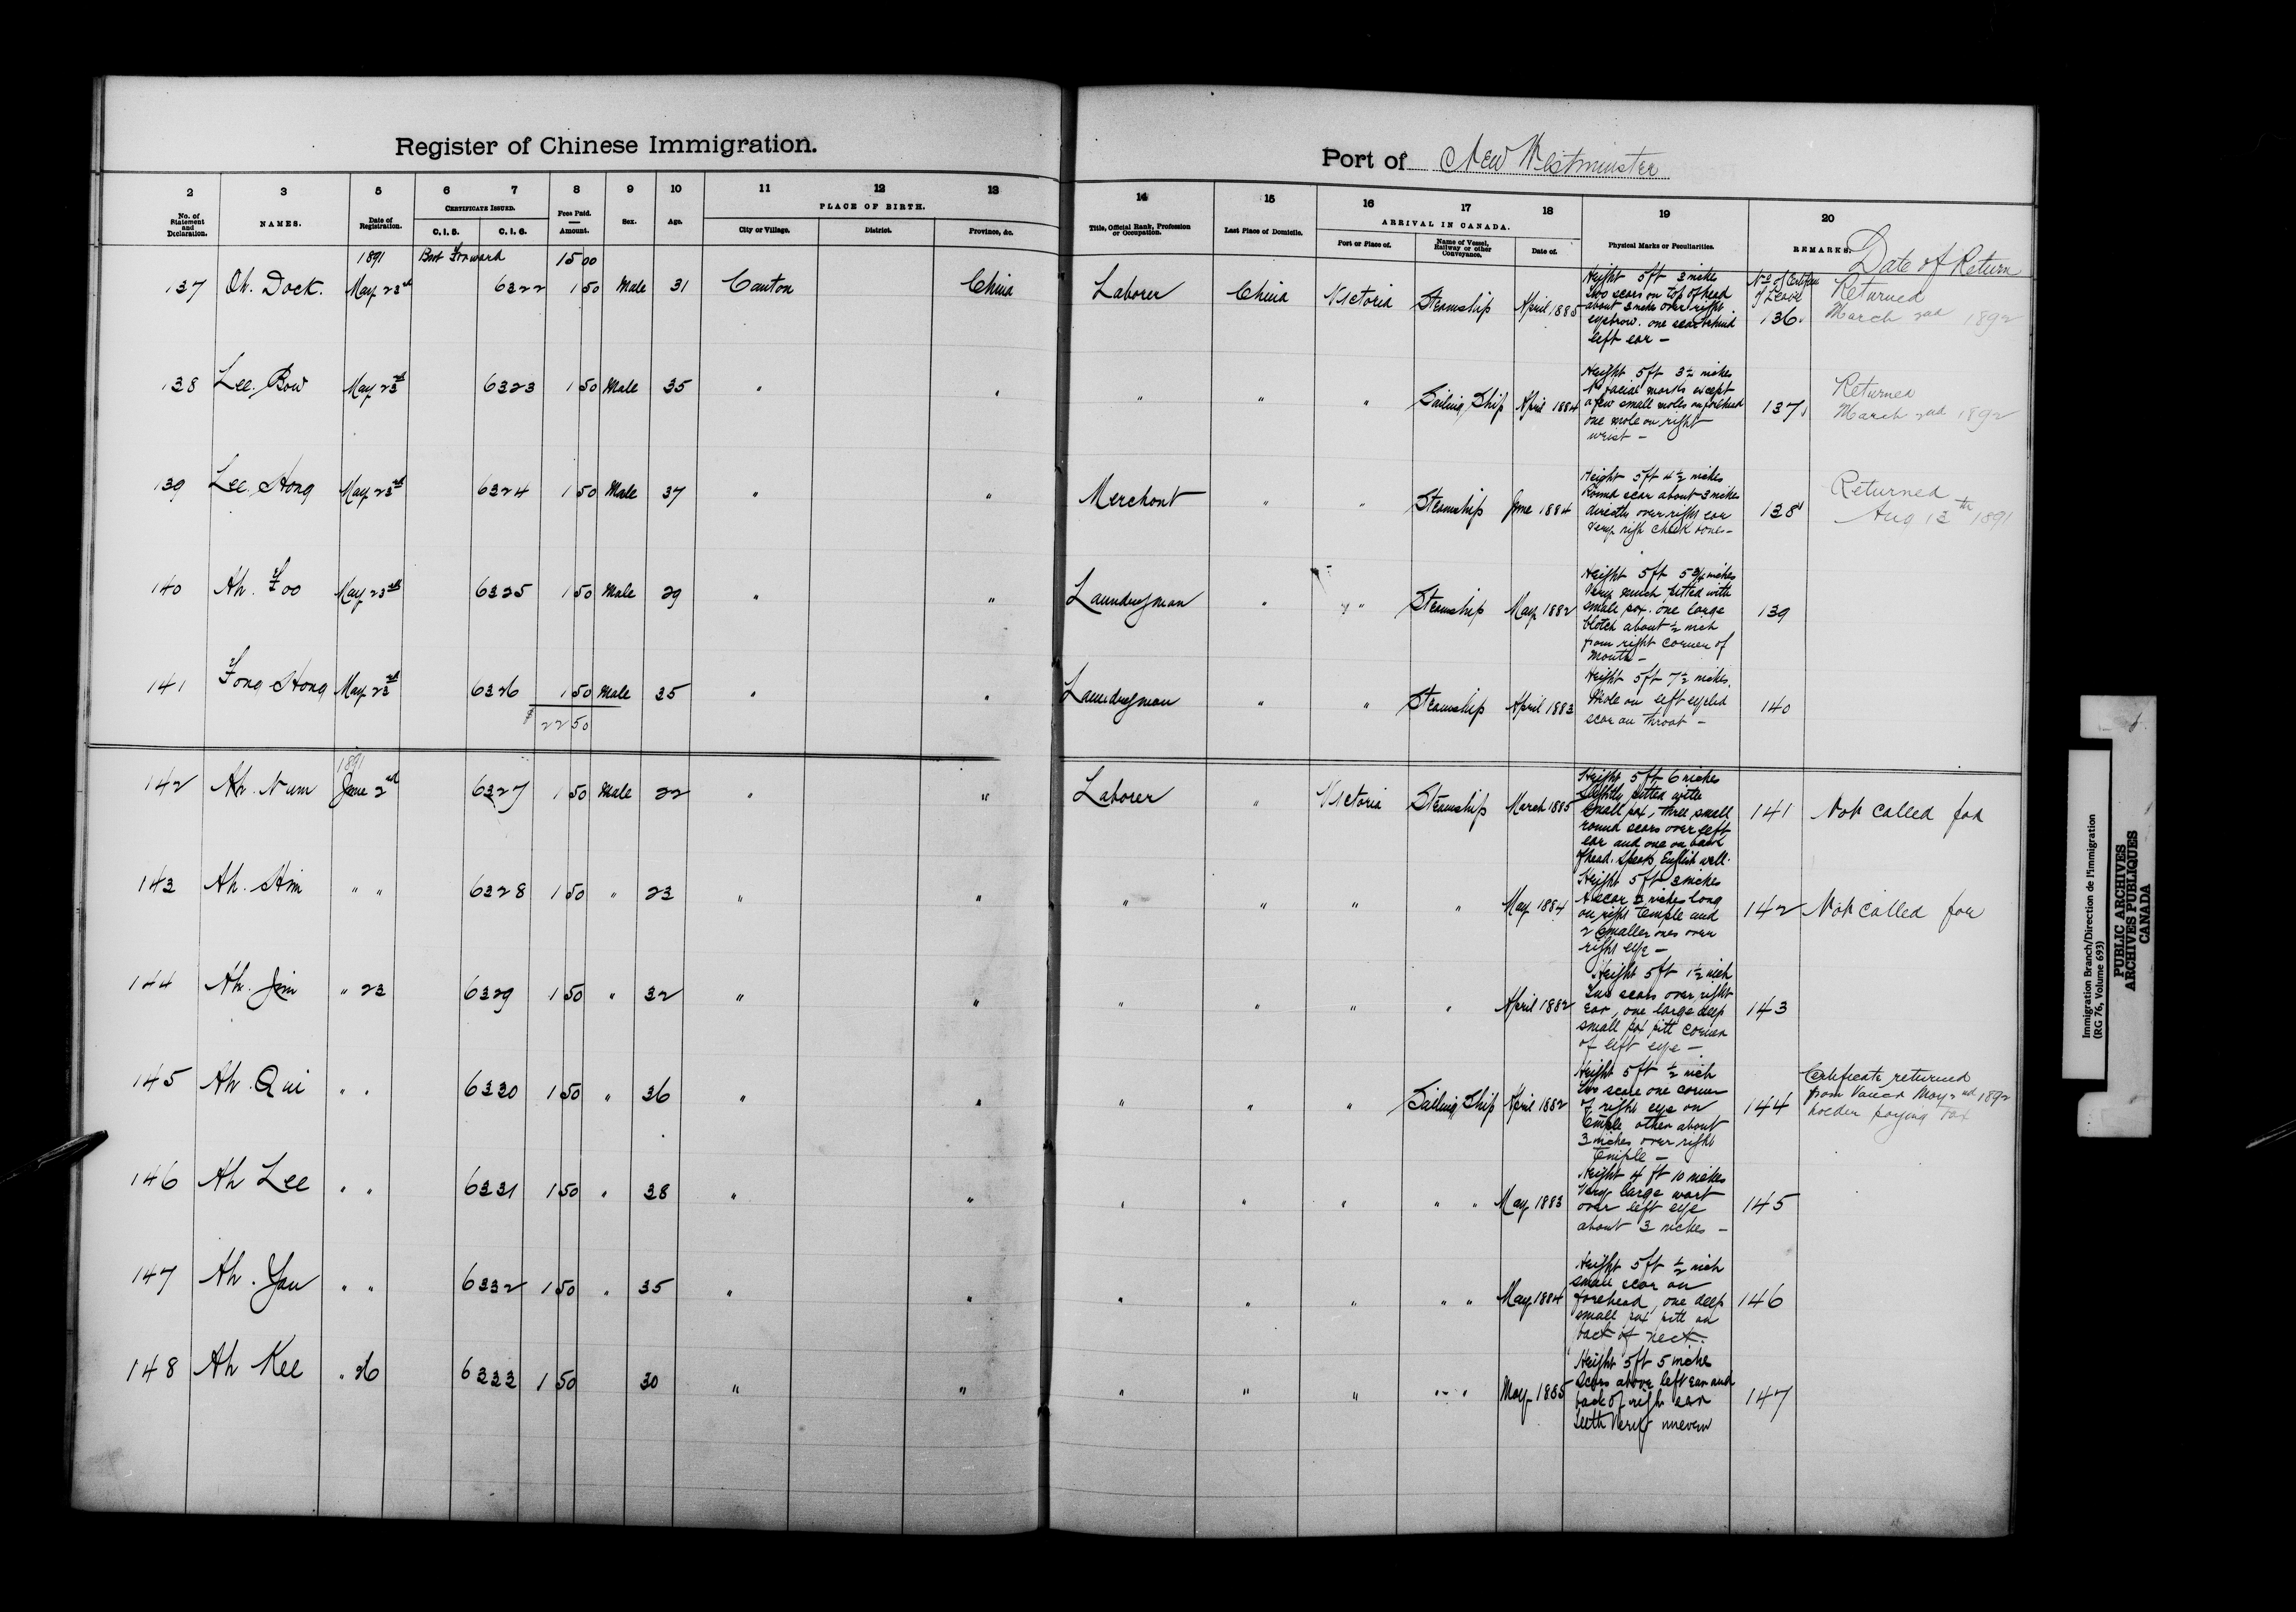 Register of Chinese Immigration.
Port of New Westminster
2 3 5 6 7 8 9 10 11 12 13 14 15 16 17 18 19 20
No. of Statement and Declaration. NAMES. Date of Registration. CERTIFICATE ISSUED. C.I.5. C.I.6. Fees Paid. Amount. Sex. Age. PLACE OF BIRTH. City or Village. District. Province, &c. Title, Official Rank, Profession or Occupation. Last Place of Domicile. ARRIVAL IN CANADA. Port or Place of. Name of Vessel, Railway or other Conveyance. Date of. Physical Marks or Peculiarities. REMARKS. Date of Return
1891 Brot Forward 15 00
137 Oh. Dock. May 23rd 6322 1 50 Male 31 Canton China Laborer China Victoria Steamship April 1885
Height 5ft 3 inches
Two scars on top of head
about 3 inches over right
eyebrow. one scar behind
left ear –
No of Certifica
of Leave
136.
Returned
March 2nd 1892
138 Lee. Bow May 23rd 6323 1 50 Male 35 " " " " " Sailing Ship April 1884
Height 5ft 3½ inches
No facial marks except
a few small moles on forehead
one mole on right
wrist –
137
Returned
March 2nd 1892
139 Lee. Hong May 23rd 6324 1 50 Male 37 " " Merchant " " Steamship June 1884
Height 5ft 4½ inches
Round scar about 3 inches
directly over right ear
very high cheek bones –
138
Returned
Aug 13th 1891
140 Ah. Foo May 23rd 6325 1 50 Male 29 " " Laundryman " " " Steamship May 1882
Height 5ft 5¾ inches
Very much pitted with
small pox. one large
blotch about ½ inch
from right corner of
mouth –
139
141 Fong Hong May 23rd 6326 1 50 Male 35 " " Laundryman " " Steamship April 1883
Height 5ft 7½ inches.
Mole on left eyelid
scar on throat –
140
$ 22 50
1891
142 Ah. Num June 2nd 6327 1 50 Male 22 " " Laborer " Victoria Steamship March 1885
Height 5ft 6 inches
Slightly pitted with
small pox, three small
round scars over left
ear and one on back
of head. Speaks English well.
141 Not called for
143 Ah. Him " " 6328 1 50 " 23 " " " " " " May 1884
Height 5ft 3 inches
A scar 2 inches long
on right temple and
2 smaller ones over
right eye –
142 Not called for
144 Ah. Jim " 23 6329 1 50 " 32 " " " " " " April 1882
Height 5ft 1½ inch
Two scars over right
ear, one large deep
small pox pitt corner
of left eye –
143
145 Ah. Qui " " 6330 1 50 " 36 " " " " " Sailing Ship April 1882
Height 5ft ½ inch
Two scars one corner
of right eye on
temple other about
3 inches over right
temple –
144
Certificate returned
from Vancr May 2nd 1892
holder paying tax
146 Ah Lee " " 6331 1 50 " 38 " " " " " " " May 1883
Height 4 ft 10 inches
Very large wart
over left eye
about 3 inches –
145
147 Ah. Yau " " 6332 1 50 " 35 " " " " " " " May 1884
Height 5ft ½ inch
small scar on
forehead, one deep
small pox pitt on
back of neck.
146
148 Ah Kee " 26 6333 1 50 30 " " " " " " " May 1885
Height 5ft 5 inches
Scars above left ear and
back of right ear
teeth very uneven
147
Immigration Branch/Direction de l'immigration
(RG 76, Volume 693)
PUBLIC ARCHIVES
ARCHIVES PUBLIQUES
CANADA